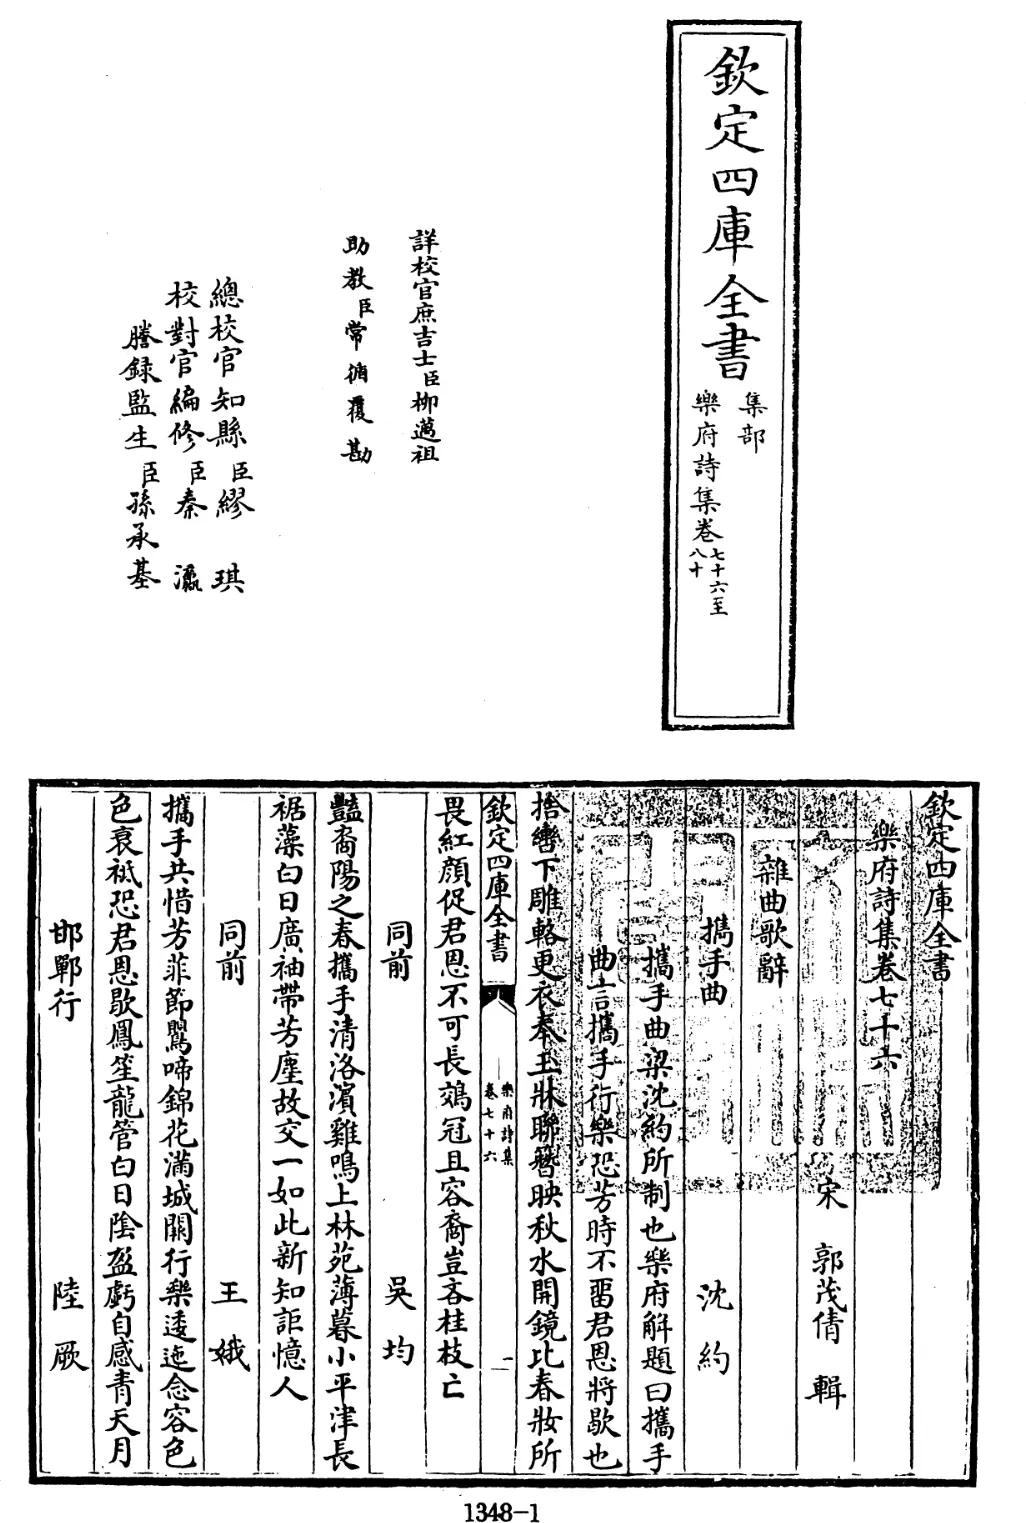 欽定四庫全書
集部
樂府詩集卷七十六至
八十
詳校官庶吉士臣柳邁祖
助教臣常循覆勘
總校官知縣臣繆琪
校對官編修臣秦瀛
謄錄監生臣孫承基
欽定四庫全書
樂府詩集卷七十六
宋 郭茂倩 輯
雜曲歌辭
攜手曲 沈約
攜手曲梁沈約所制也樂府解題曰攜手
曲言攜手行樂恐芳時不畱君恩將歇也
捨轡下雕輅更衣奉玉牀聯簪映秋水開鏡比春妝所
欽定四庫全書 樂府詩集
卷七十六 一
畏紅顔促君恩不可長鵕冠且容裔豈吝桂枝亡
同前 吳均
豔裔陽之春攜手清洛濱雞鳴上林苑薄暮小平津長
裾藻白日廣袖帶芳塵故交一如此新知詎憶人
同前 王娥
攜手共惜芳菲節鸎啼錦花滿城闕行樂逶迤念容色
色衰祗恐君恩歇鳳笙龍管白日陰盈虧自感青天月
邯鄲行 陸厥
1348-1